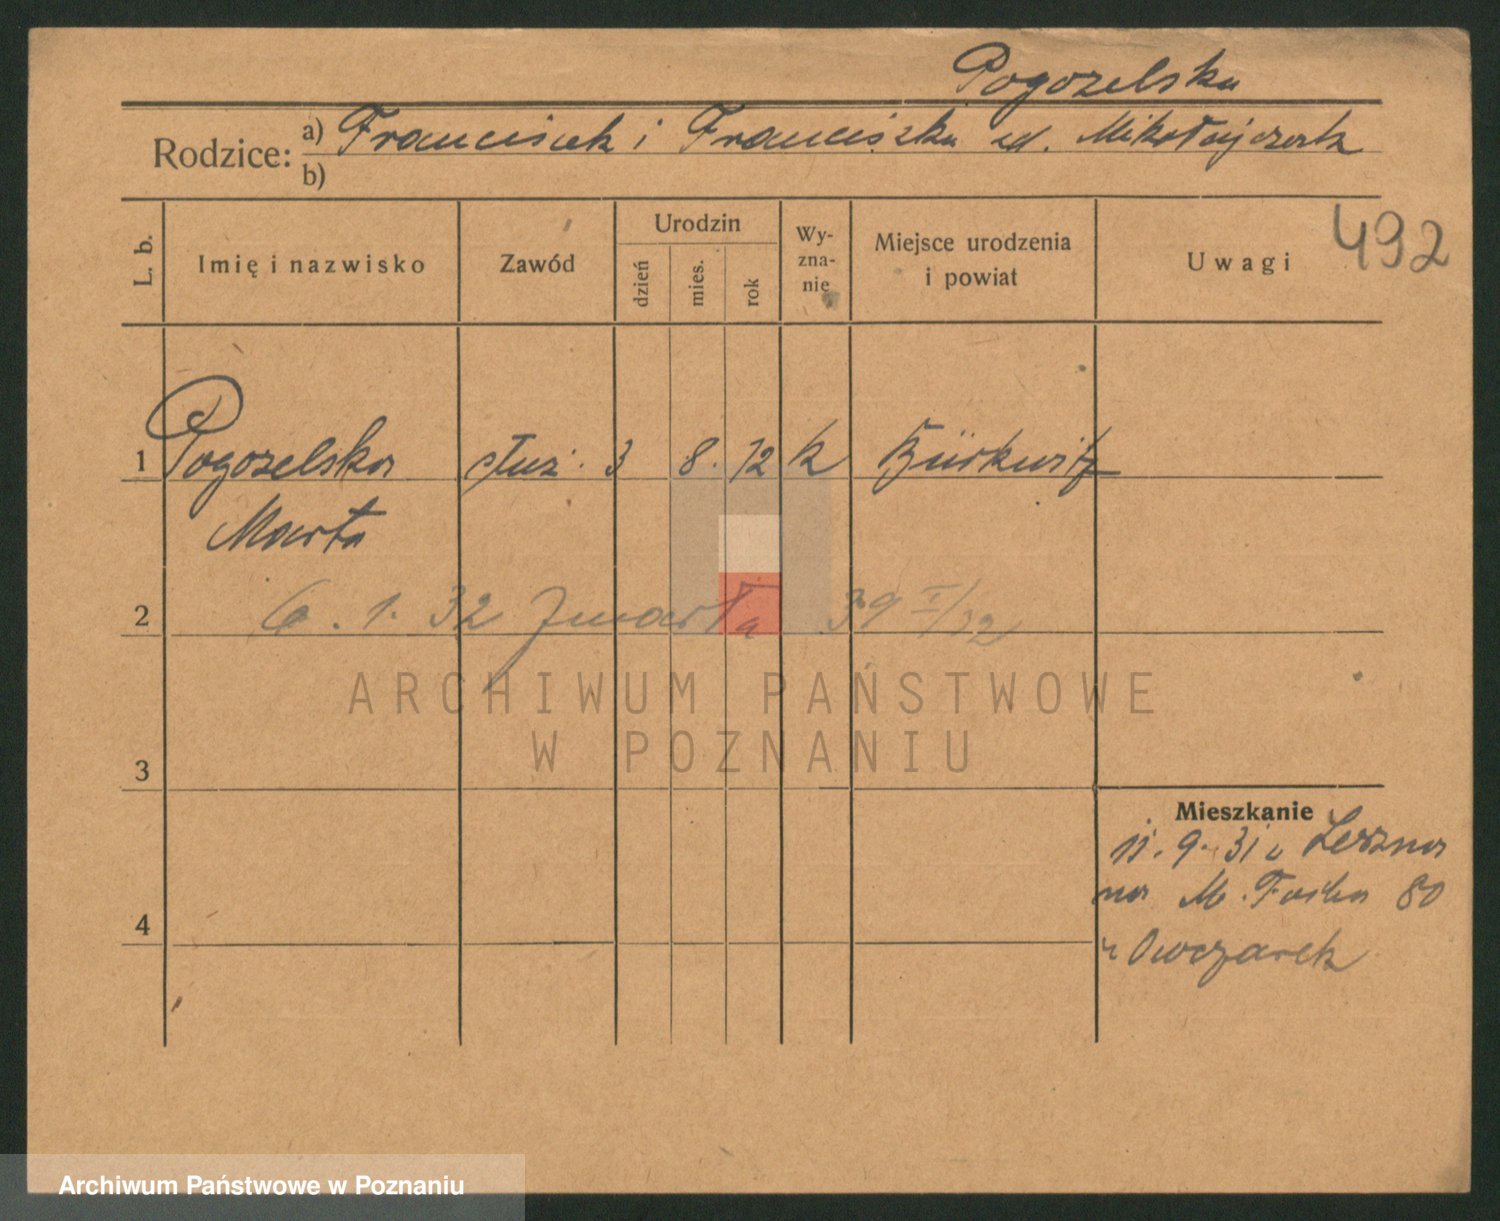 Pogozelska
Rodzice: a) Franciszek i Franciszka zd. Mikołajczak
b)
L. b. Imię i nazwisko Zawód Urodzin dzień mies. rok Wyznanię Miejsce urodzenia i powiat Uwagi 492
1 Pogozelska służ. 3 8. 12 k Bürkwitz
Marta
2 6. 1. 32 Zmarła 39 I/32
ARCHIWUM PAŃSTWOWE
W POZNANIU
3
Mieszkanie
11. 9. 31 z Leszna
na M. Focha 80
4
u Owczarek
Archiwum Państwowe w Poznaniu